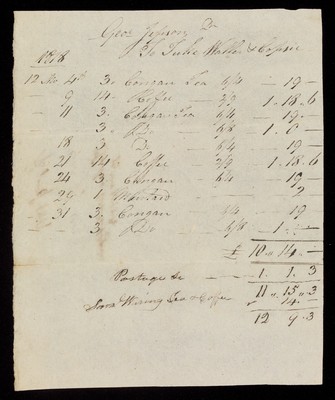 Geo. Jepson Dr
To
1818
12 4th 3 Congou Tea 6/4 — 19 —
9 14 Coffee 2/9 1 . 18 . 6
11 3 Congou Tea 6/4 — 19 —
3 Do 6/8 1 . 0 —
18 3 Do 6/4 — 19 —
21 14 Coffee 2/9 1 . 18 . 6
24 3 Congou 6/4 — 19 —
29 1 Mustard 2
31 3 Congou 6/4 — 19
3 Do 6/8 — 1 . —
£ 10 .. 14 . —
Postage &c — 1 . 1 . 3
11 .. 15 .. 3
Tea & Coffee 14 . —
12 9 . 3